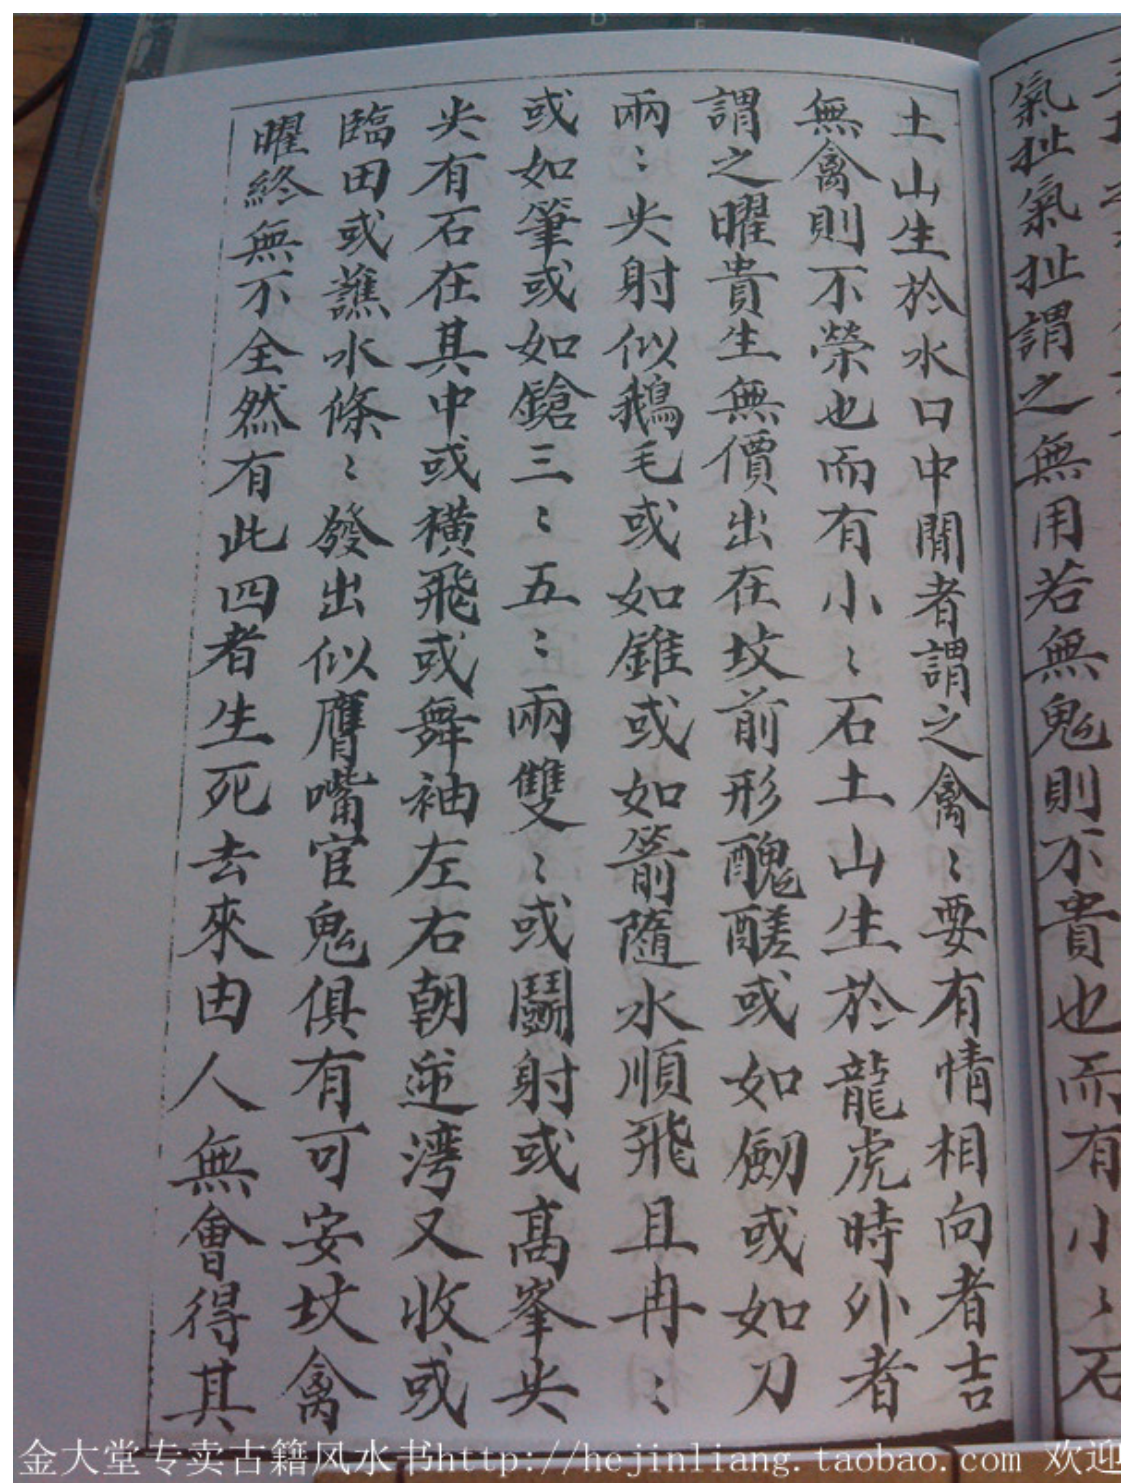 氣扯氣扯謂之無用若無鬼則不貴也而有小〻石
土山生於水口中間者謂之禽〻要有情相向者吉
無禽則不榮也而有小〻石土山生於龍虎時外者
謂之曜貴生無價出在坟前形醜醛或如劒或如刀
兩〻尖射似鵝毛或如錐或如箭隨水順飛且冉〻
或如筆或如鎗三〻五〻兩雙〻或鬬射或髙峯尖
尖有石在其中或橫飛或舞袖左右朝逆湾又收或
臨田或蘸水條〻發出似膺嘴官鬼俱有可安坟禽
曜終無不全然有此四者生死去來由人無會得其
金大堂专卖古籍风水书http://hejinliang.taobao.com 欢迎